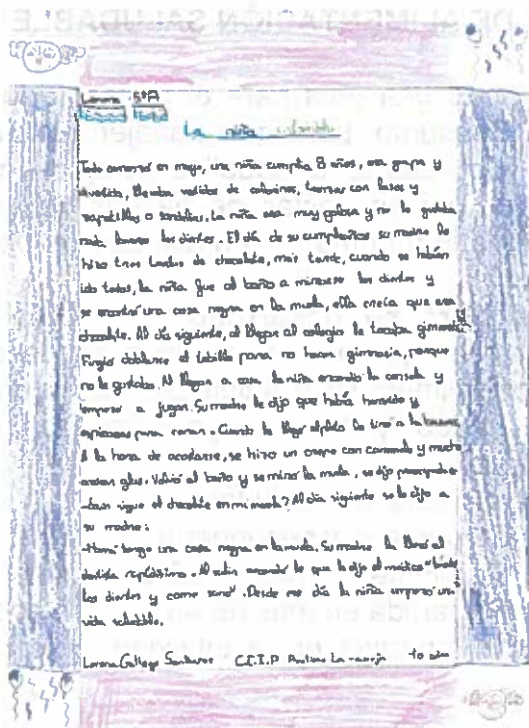 Lorena 5ºA
La niña
Todo comenzó en mayo, una niña cumplía 8 años, era guapa y
divertida, llevaba vestidos de colorines, con lazos y
zapatillas o sandalias. La niña era muy golosa y no le gustaba
nada lavarse los dientes. El día de su cumpleaños su madre le
hizo tres de chocolate, más tarde, cuando se habían
ido todos, la niña fue al baño a mirarse los dientes y
se encontró una cosa negra en la muela, ella creía que era
chocolate. Al día siguiente, al llegar al colegio le tocaba gimnasia.
Fingió doblarse el tobillo para no hacer gimnasia, porque
no le gustaba. Al llegar a casa la niña encendió la y
empezó a jugar. Su madre le dijo que había huevo y
espinacas para cenar. Cuando le llegó el plato lo tiró a la basura.
A la hora de acostarse, se hizo un crepe con caramelo y mucho
Volvió al baño y se miró la muela, se dijo
sigue el chocolate en mi muela? Al día siguiente se lo dijo a
su madre:
-Mamá tengo una cosa negra en la muela. Su madre la llevó al
dentista rapidísimo. Al salir recordó lo que le dijo el médico
los dientes y come sano". Desde ese día la niña empezó una
vida saludable.
Lorena Gallego C.E.I.P 10 años